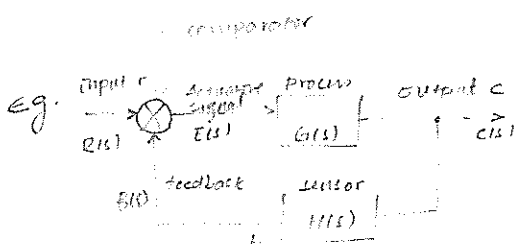 comparator
Eg. input r actuating signal process output c
R(s) E(s) G(s) C(s)
B(s) feedback sensor
H(s)